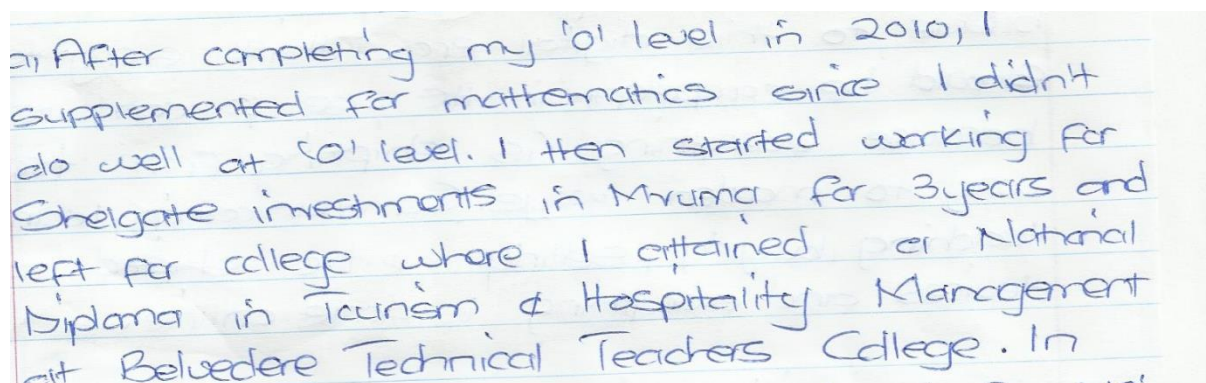 a, After completing my 'O' level in 2010, I
supplemented for mathematics since I didn't
do well at 'O' level. I then started working for
Shelgate investments in Mvuma for 3years and
left for college where I attained a National
Diploma in Tourism & Hospitality Management
at Belvedere Technical Teachers College. In